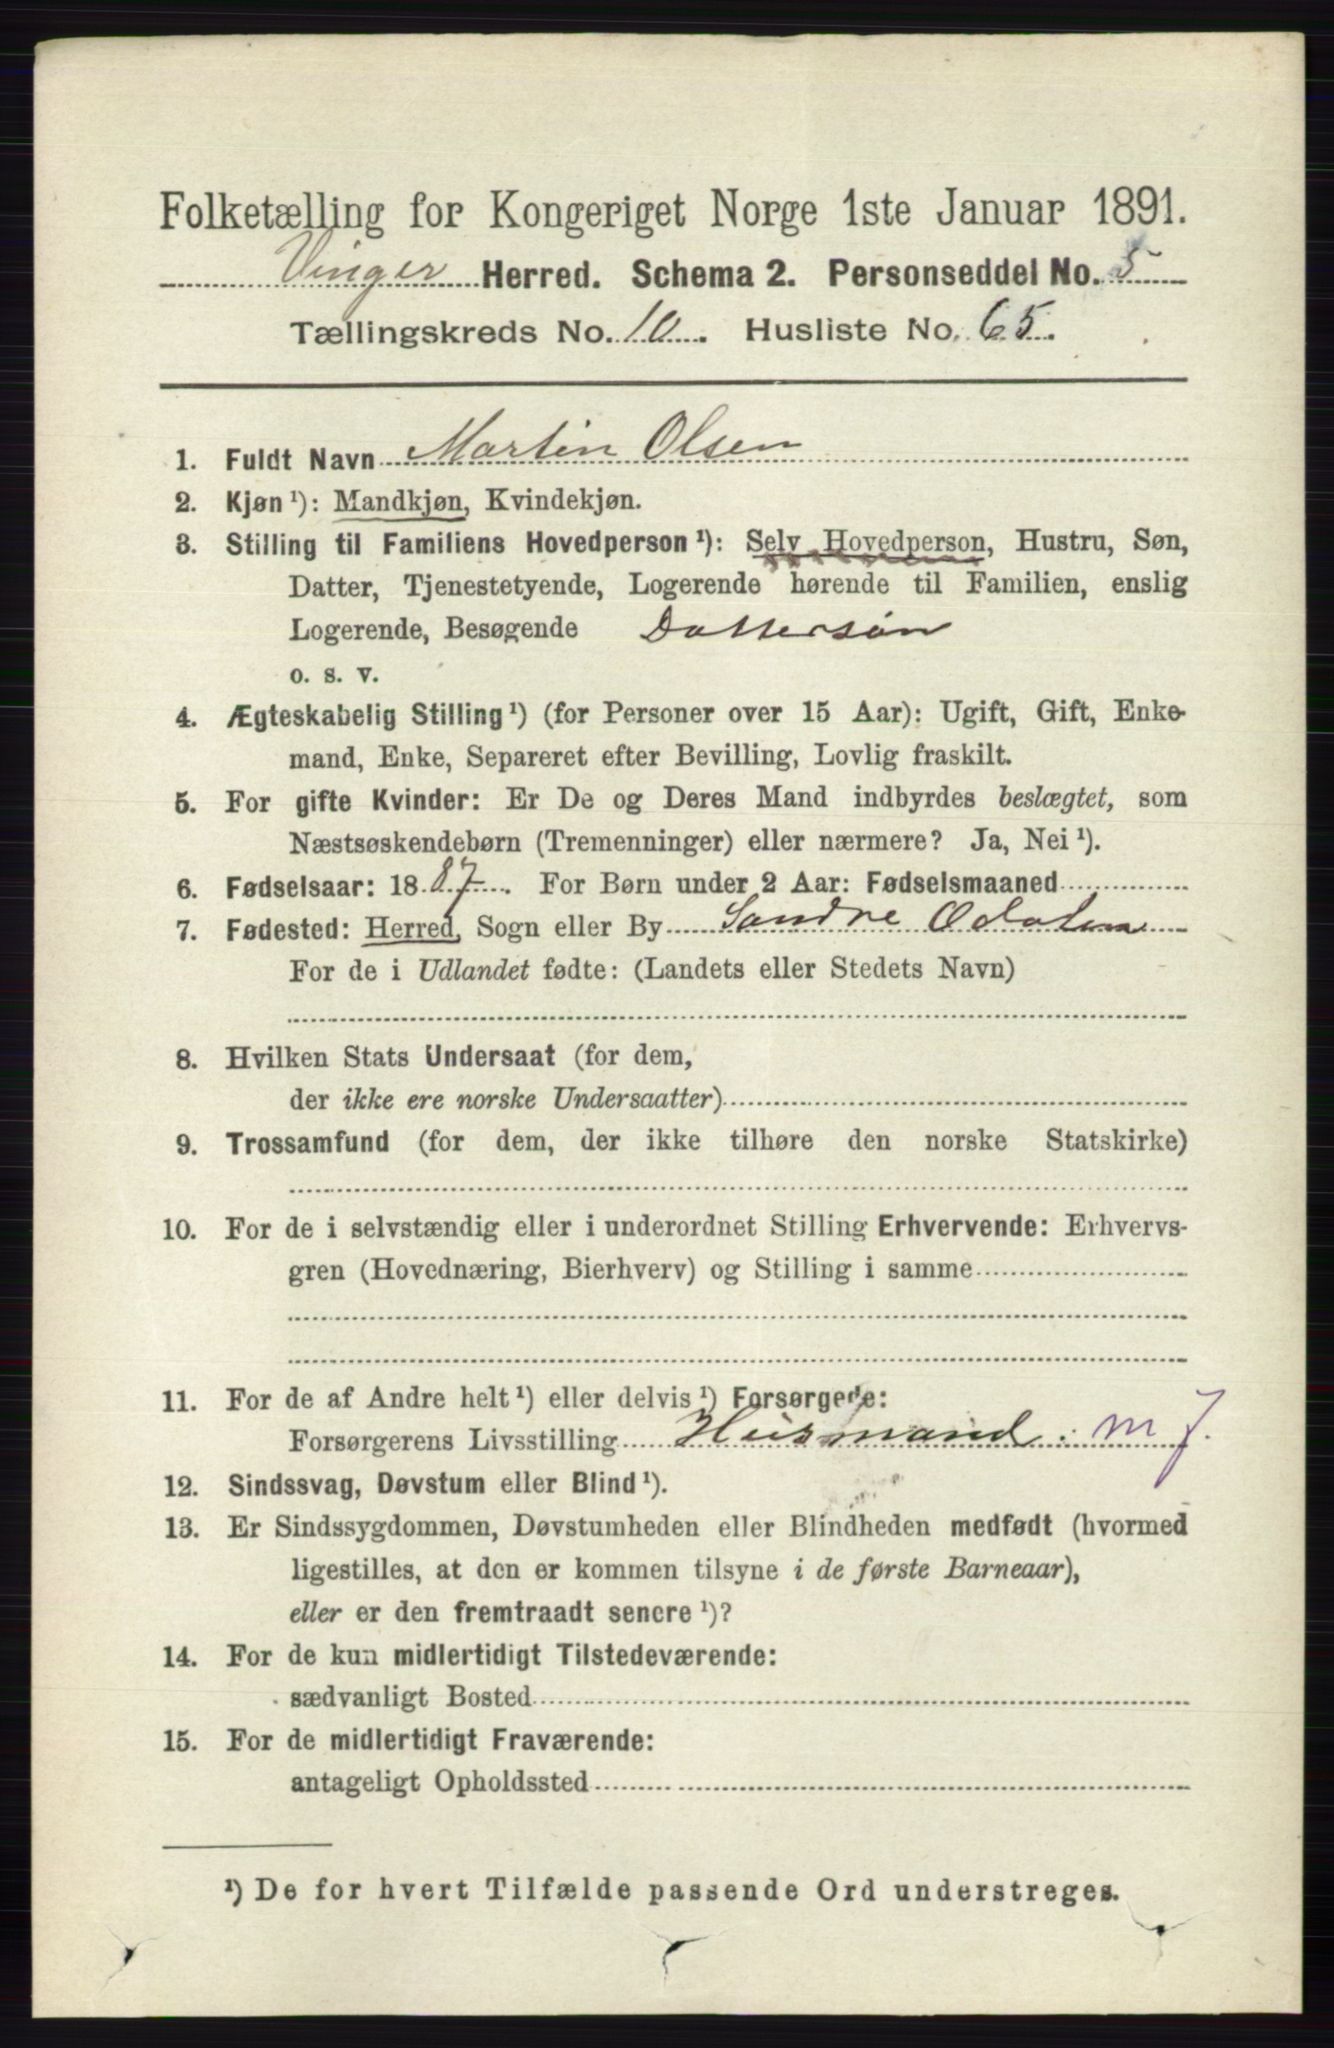 Folketælling for Kongeriget Norge 1ste Januar 1891.
Vinger Herred. Schema 2. Personseddel No. 5
Tællingskreds No. 10. Husliste No. 65.
1. Fuldt Navn Martin Olsen
2. Kjøn ¹): Mandkjøn, Kvindekjøn.
3. Stilling til Familiens Hovedperson ¹): Selv Hovedperson, Hustru, Søn,
Datter, Tjenestetyende, Logerende hørende til Familien, enslig
Logerende, Besøgende Dattersøn
o. s. v.
4. Ægteskabelig Stilling ¹) (for Personer over 15 Aar): Ugift, Gift, Enke-
mand, Enke, Separeret efter Bevilling, Lovlig fraskilt.
5. For gifte Kvinder: Er De og Deres Mand indbyrdes beslægtet, som
Næstsøskendebørn (Tremenninger) eller nærmere? Ja, Nei ¹).
6. Fødselsaar: 1887. For Børn under 2 Aar: Fødselsmaaned
7. Fødested: Herred, Sogn eller By Søndre Odalen
For de i Udlandet fødte: (Landets eller Stedets Navn)
8. Hvilken Stats Undersaat (for dem,
der ikke ere norske Undersaatter)
9. Trossamfund (for dem, der ikke tilhøre den norske Statskirke)
10. For de i selvstændig eller i underordnet Stilling Erhvervende: Erhvervs-
gren (Hovednæring, Bierhverv) og Stilling i samme
11. For de af Andre helt ¹) eller delvis ¹) Forsørgede:
Forsørgerens Livsstilling Husmand. m J.
12. Sindssvag, Døvstum eller Blind ¹).
13. Er Sindssygdommen, Døvstumheden eller Blindheden medfødt (hvormed
ligestilles, at den er kommen tilsyne i de første Barneaar),
eller er den fremtraadt senere ¹)?
14. For de kun midlertidigt Tilstedeværende:
sædvanligt Bosted
15. For de midlertidigt Fraværende:
antageligt Opholdssted
¹) De for hvert Tilfælde passende Ord understreges.